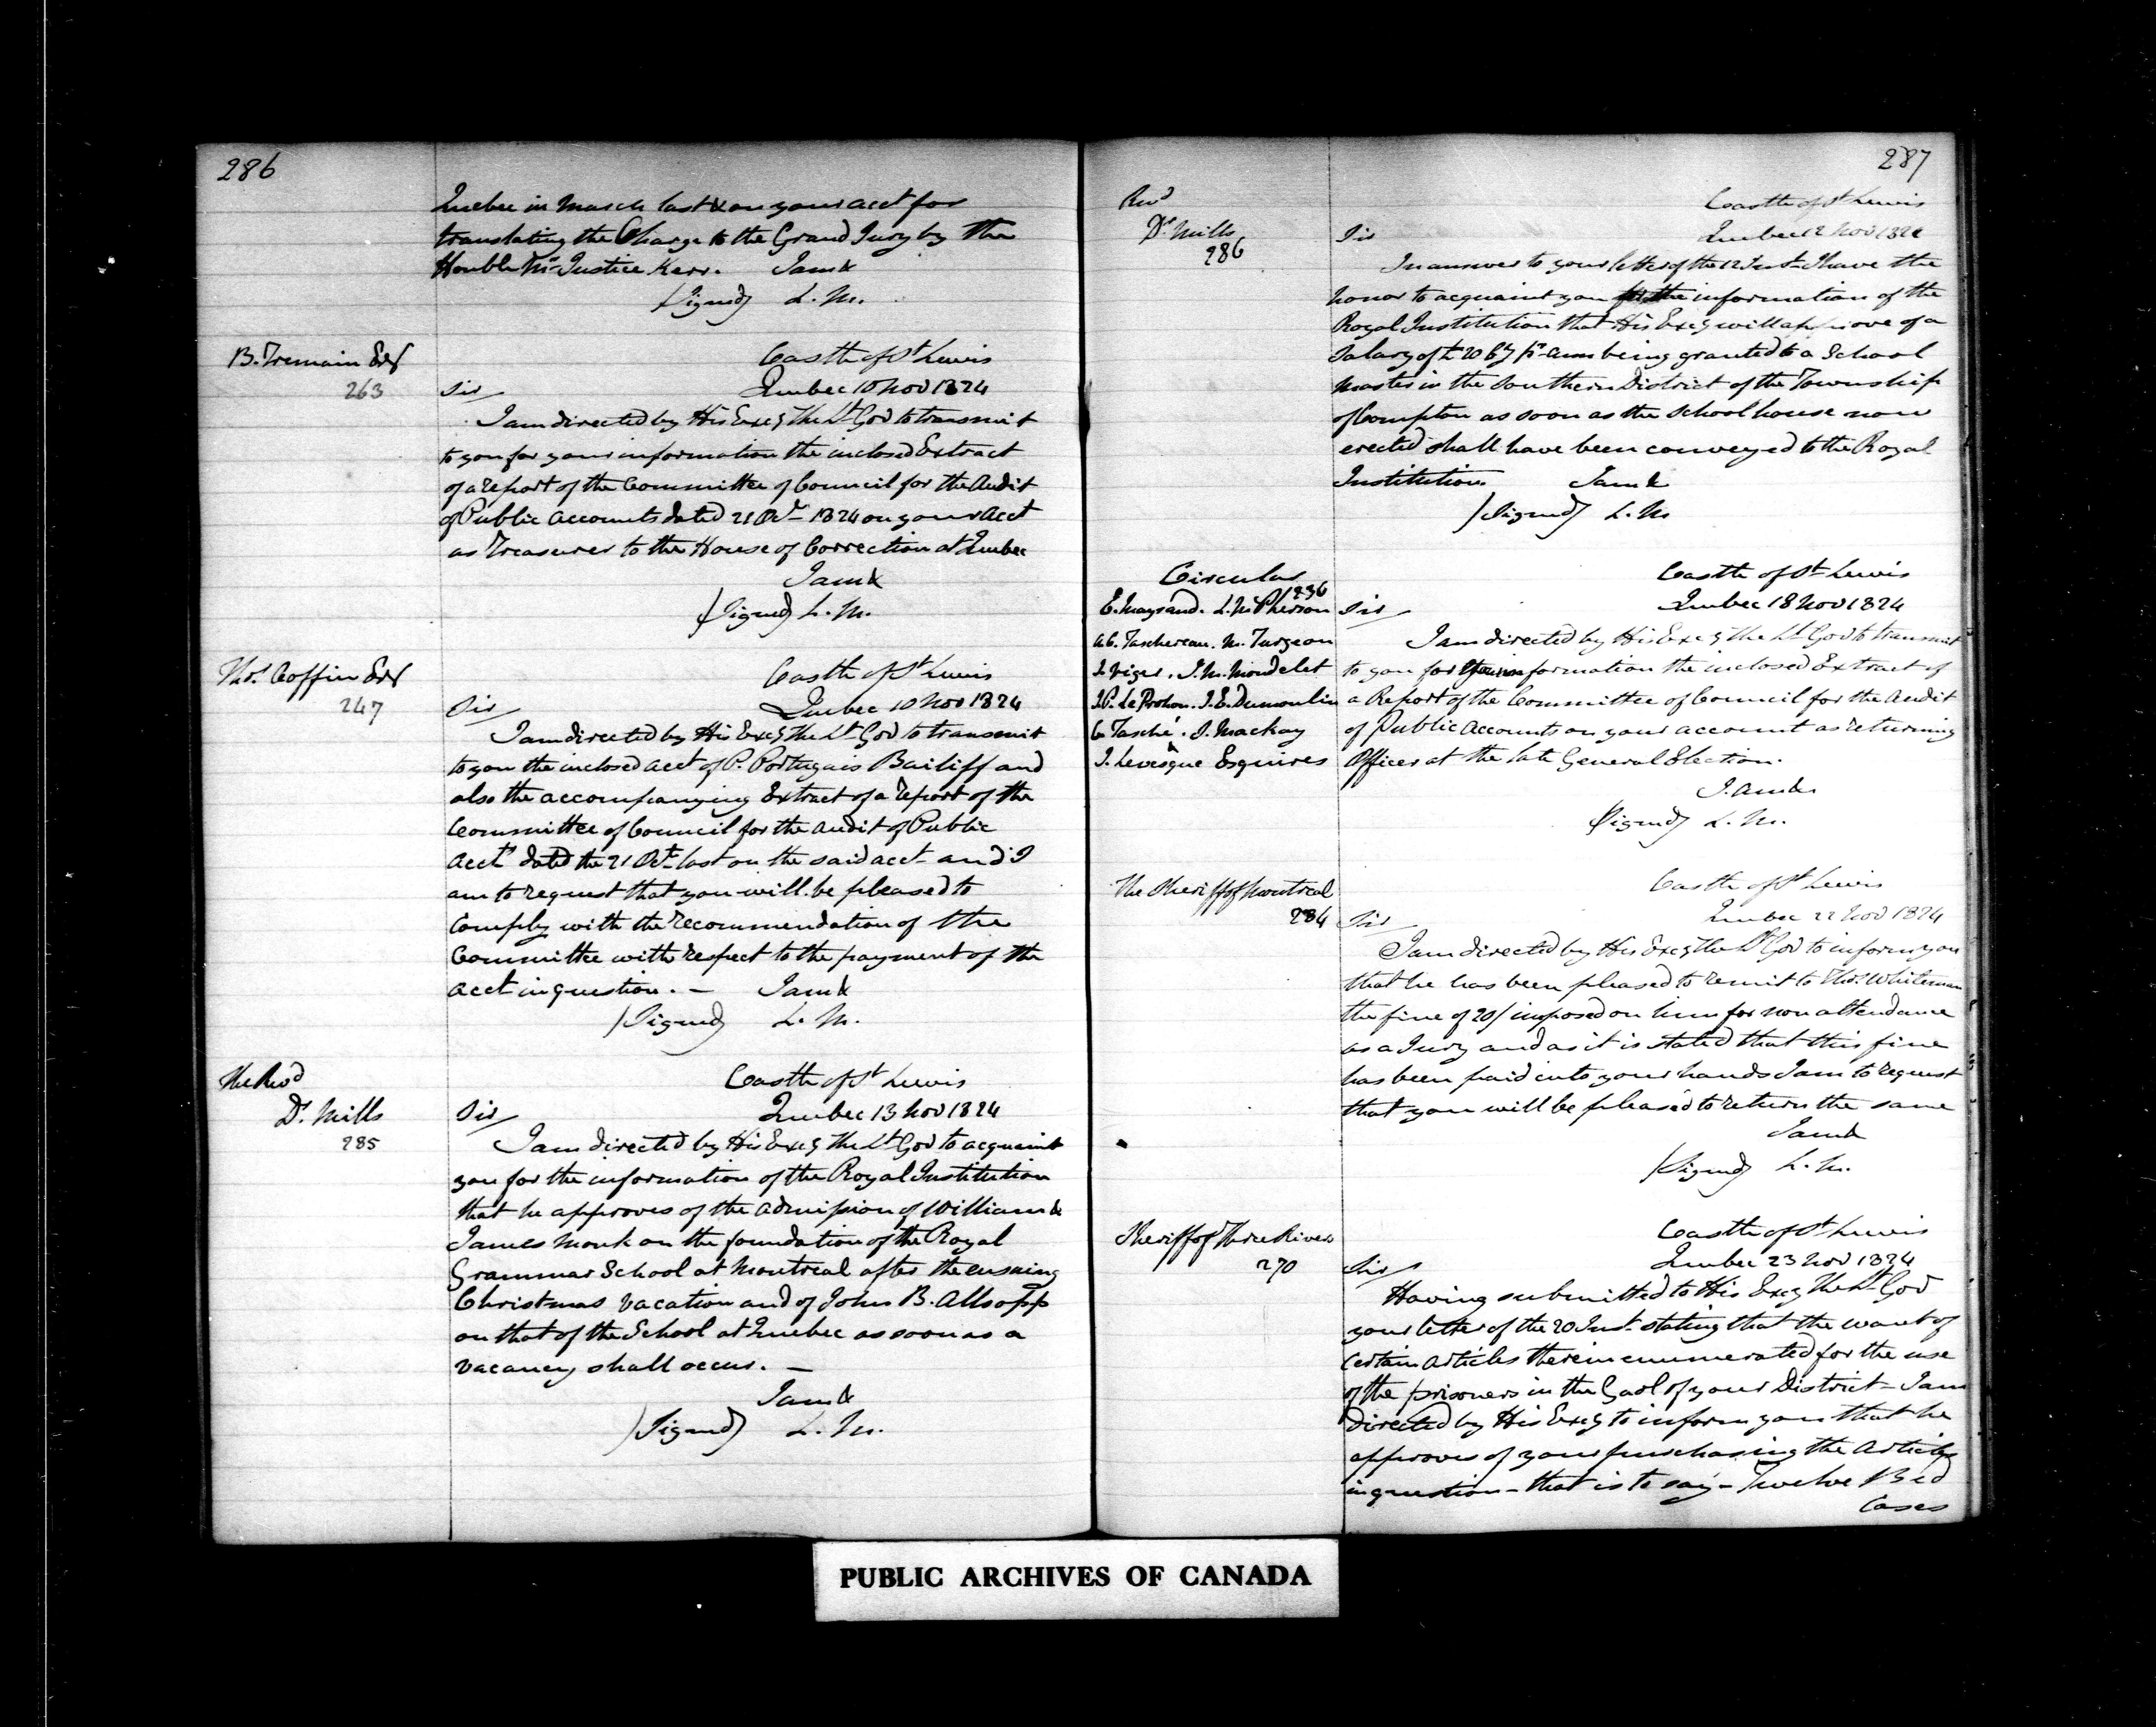 286
Quebec in March last & on your acct for
translating the Charge to the Grand Jury by the
Honble Mr Justice Kerr. I am &
(Signed) L. M.
B. Tremain Esqr
263
Castle of St Lewis
Sir Quebec 10 Nov 1824
I am directed by His Excy the Lt Gov to transmit
to you for your information the inclosed Extract
of a report of the Committee of Council for the Audit
of Public Accounts dated 21 Octr 1824 on your Acct
as Treasurer to the House of Correction at Quebec
I am &
(Signed) L. M.
Thos Coffin Esqr
247
Castle of St Lewis
Sir Quebec 10 Nov 1824
I am directed by His Excy the Lt Gov to transmit
to you the inclosed acct of P. Portugais Bailiff and
also the accompanying Extract of a report of the
Committee of Council for the Audit of Public
Accts dated the 21 Octr last on the said acct and I
am to request that you will be pleased to
Comply with the recommendation of the
Committee with respect to the payment of the
acct in question. — I am &
(Signed) L. M.
The Revd
Dr Mills
285
Castle of St Lewis
Sir Quebec 13 Nov 1824
I am directed by His Excy the Lt Gov to acquaint
you for the information of the Royal Institution
that he approves of the admission of William &
James Monk on the foundation of the Royal
Grammar School at Montreal after the ensuing
Christmas vacation and of John B. Allsopp
on that of the School at Quebec as soon as a
vacancy shall occur. —
I am &
(Signed) L. M.
287
Revd
Dr Mills
286
Castle of St Lewis
Sir Quebec 12 Nov 1824
In answer to your letter of the 12 Inst I have the
honor to acquaint you for the information of the
Royal Institution that His Excy will approve of a
Salary of £20 Cy pr ann being granted to a School
Master in the Southern District of the Township
of Compton as soon as the School house now
erected shall have been conveyed to the Royal
Institution I am &
(Signed) L. M
Circular
236
E. Mayrand. L. McPherson
A.C. Taschereau. M. Turgeon
J. Viger. J. M. Mondelet
J.P. Le Prohon. J. E. Dumoulin
C. Tasché. J. Mackay
J. Levesque Esquires
Castle of St Lewis
Sir Quebec 18 Nov 1824
I am directed by His Excy the Lt Gov to transmit
to you for your information the inclosed Extract of
a Report of the Committee of Council for the Audit
of Public Accounts on your account as returning
Officer at the late General Election.
I am &c
(Signed) L. M.
The Sheriff of Montreal
284
Castle of St Lewis
Sir Quebec 22 Nov 1824
I am directed by His Excy the Lt Gov to inform you
that he has been pleased to remit to Thos. Whiteman
the fine of 20/ imposed on him for non attendance
as a Jury and as it is stated that this fine
has been paid into your hands I am to request
that you will be pleased to return the same
I am &
(Signed) L. M.
Sheriff of Three Rivers
270
Castle of St Lewis
Sir Quebec 23 Nov 1824
Having submitted to His Excy the Lt Gov
your letter of the 20 Inst. stating that the want of
certain articles therein enumerated for the use
of the prisoners in the Gaol of your District — I am
directed by His Excy to inform you that he
approves of your purchasing the Articles
in question — that is to say — Twelve Bed
Cases
PUBLIC ARCHIVES OF CANADA